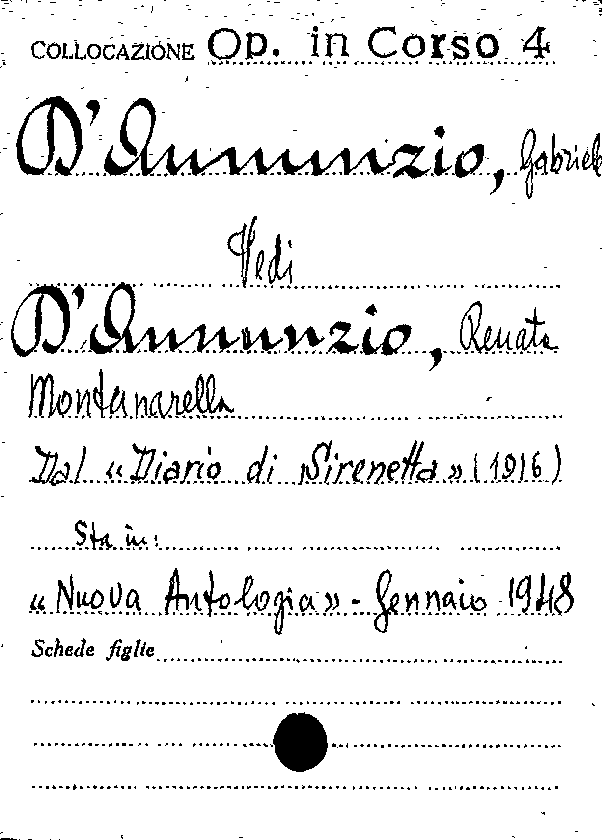 COLLOCAZIONE Op. in Corso 4
D'Annunzio, Gabriele
Vedi
D'Annunzio, Renata
Montanarella
Dal «Diario di Sirenetta» (1916)
Sta in:
«Nuova Antologia» - Gennaio 1948
Schede figlie